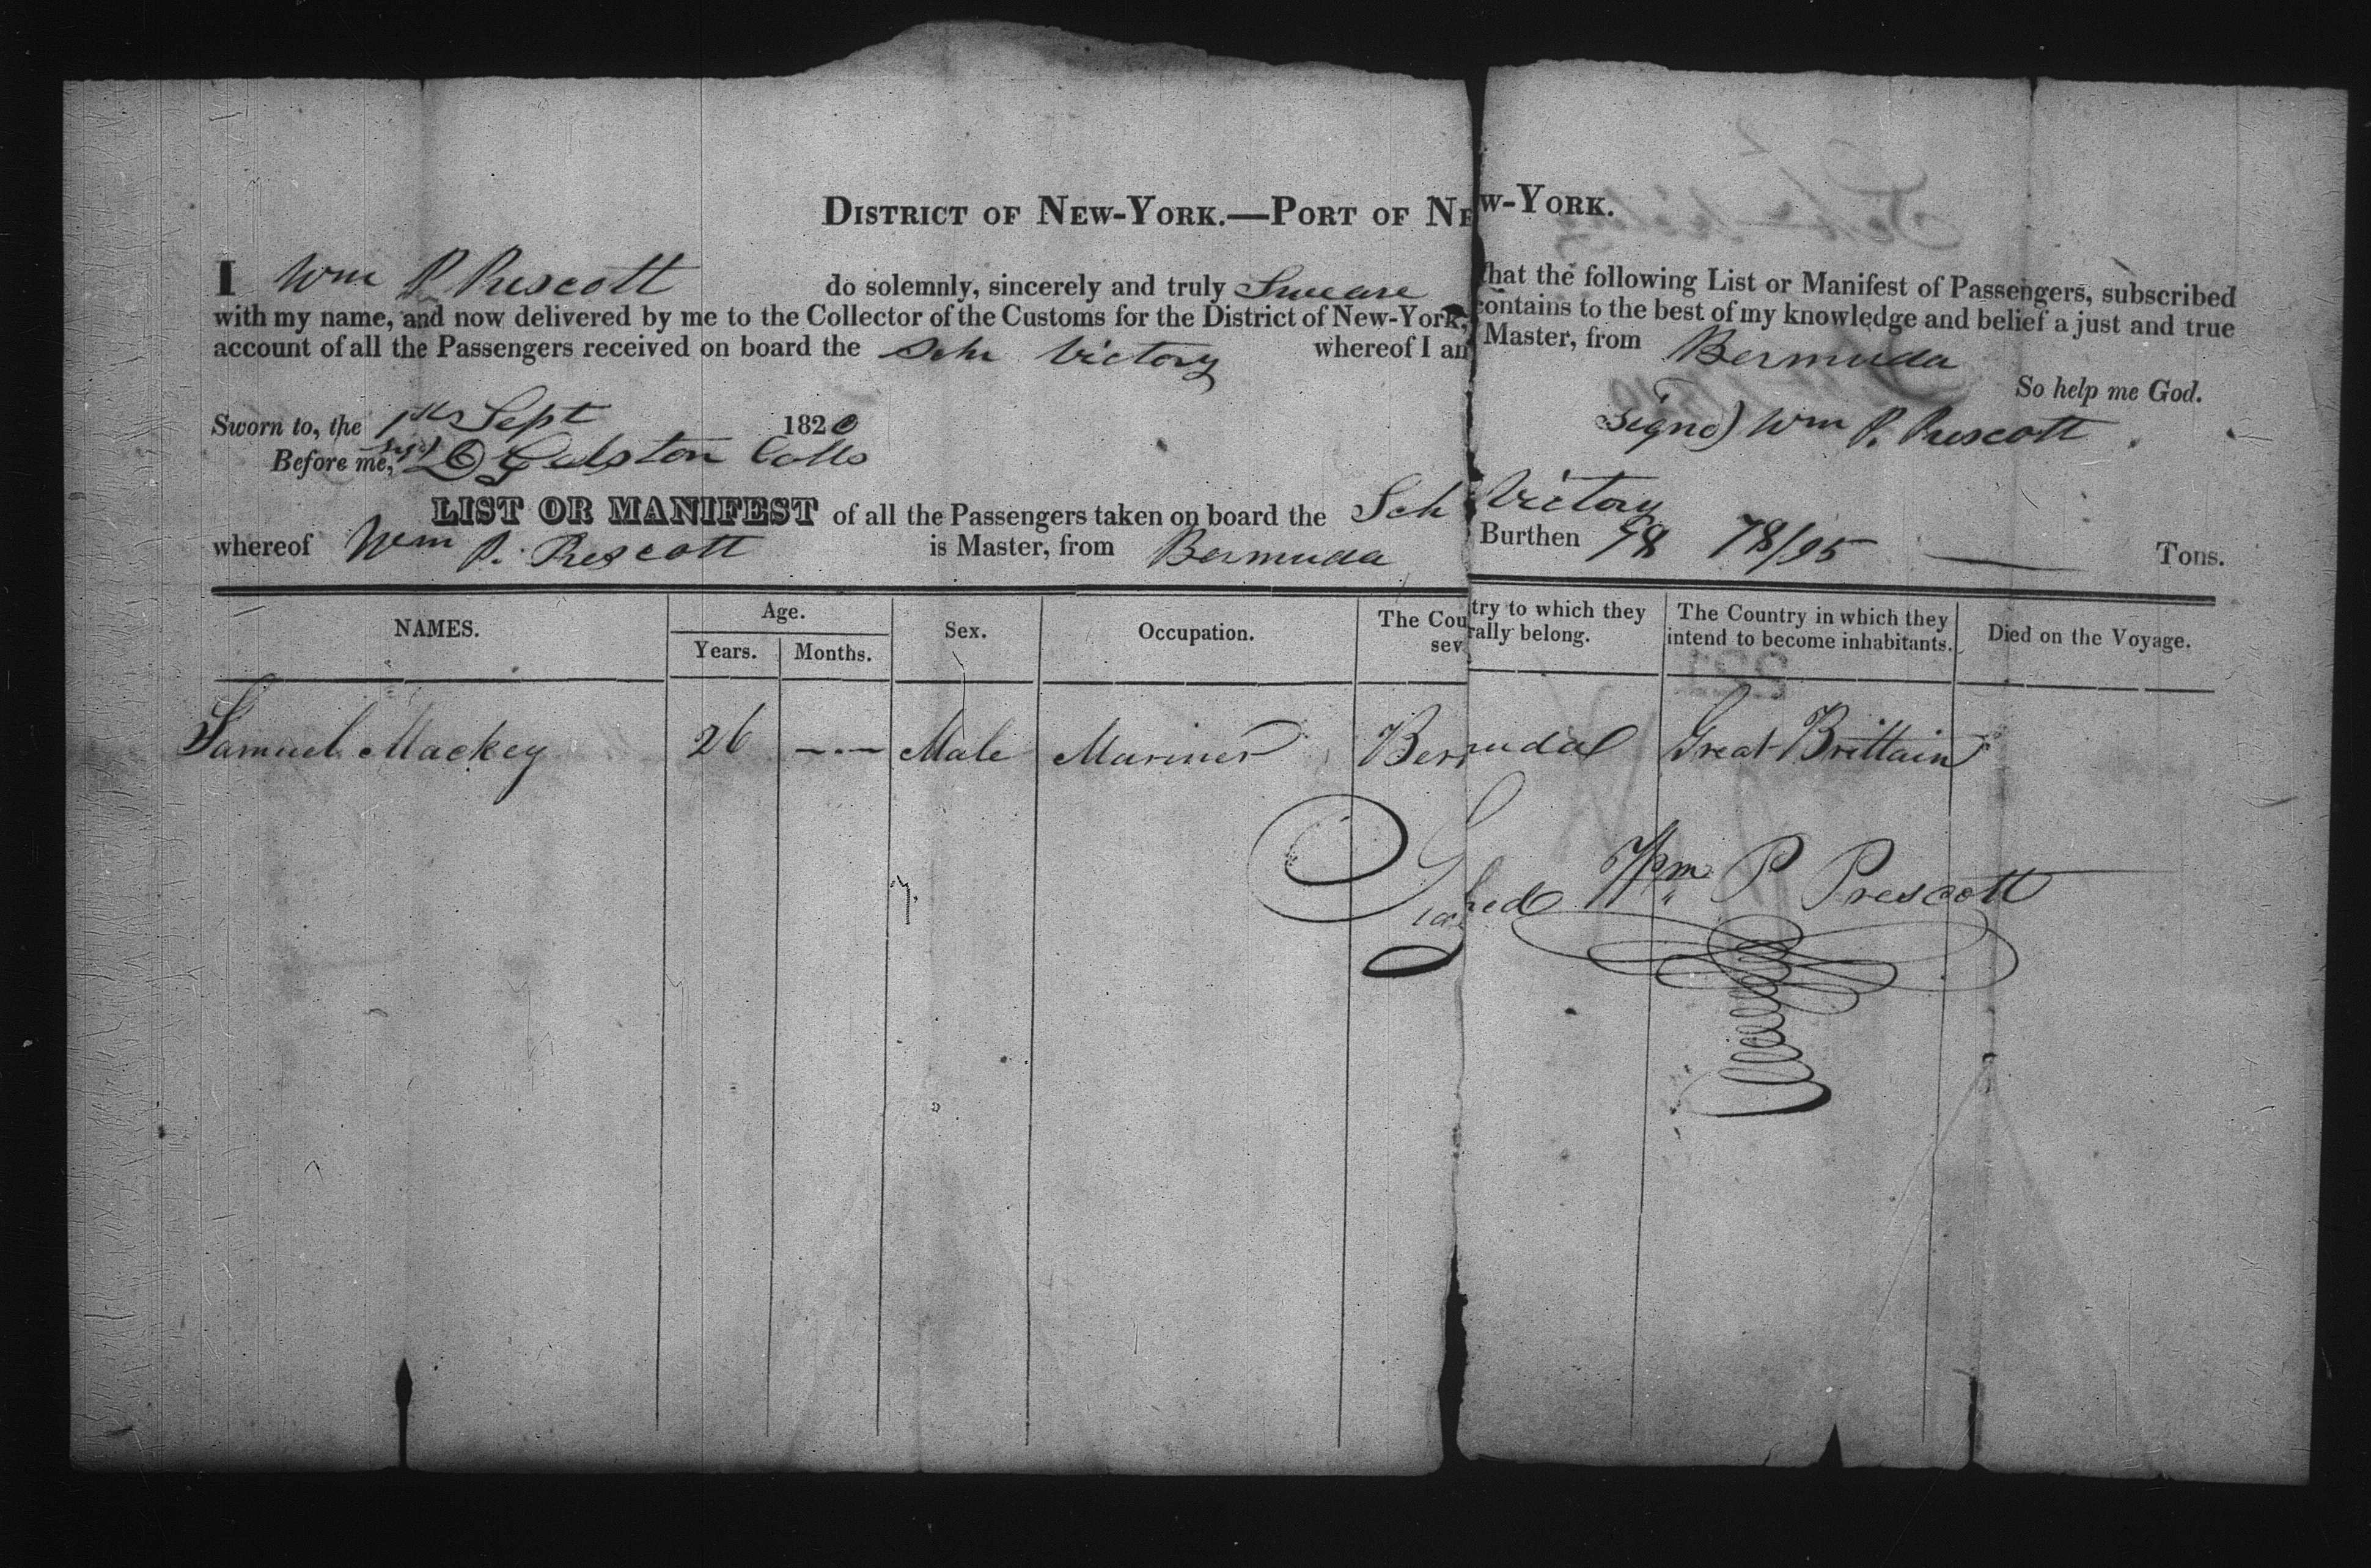 DISTRICT OF NEW-YORK.—PORT OF NEW-YORK.
I Wm P Prescott do solemnly, sincerely and truly Sweare that the following List or Manifest of Passengers, subscribed
with my name, and now delivered by me to the Collector of the Customs for the District of New-York, contains to the best of my knowledge and belief a just and true
account of all the Passengers received on board the Schr Victory whereof I am Master, from Bermuda
So help me God.
Sworn to, the 1st Sept 1820 signd) Wm P. Prescott
Before me, D Gelston Collr
LIST OR MANIFEST of all the Passengers taken on board the Sch Victory
whereof Wm P. Prescott is Master, from Bermuda Burthen 98 78/95 Tons.
NAMES. Age. Years. Months. Sex. Occupation. The Country to which they severally belong. The Country in which they intend to become inhabitants. Died on the Voyage.
Samuel Mackey 26 --- Male Mariner Bermuda Great Brittain
Signed Wm P Prescott